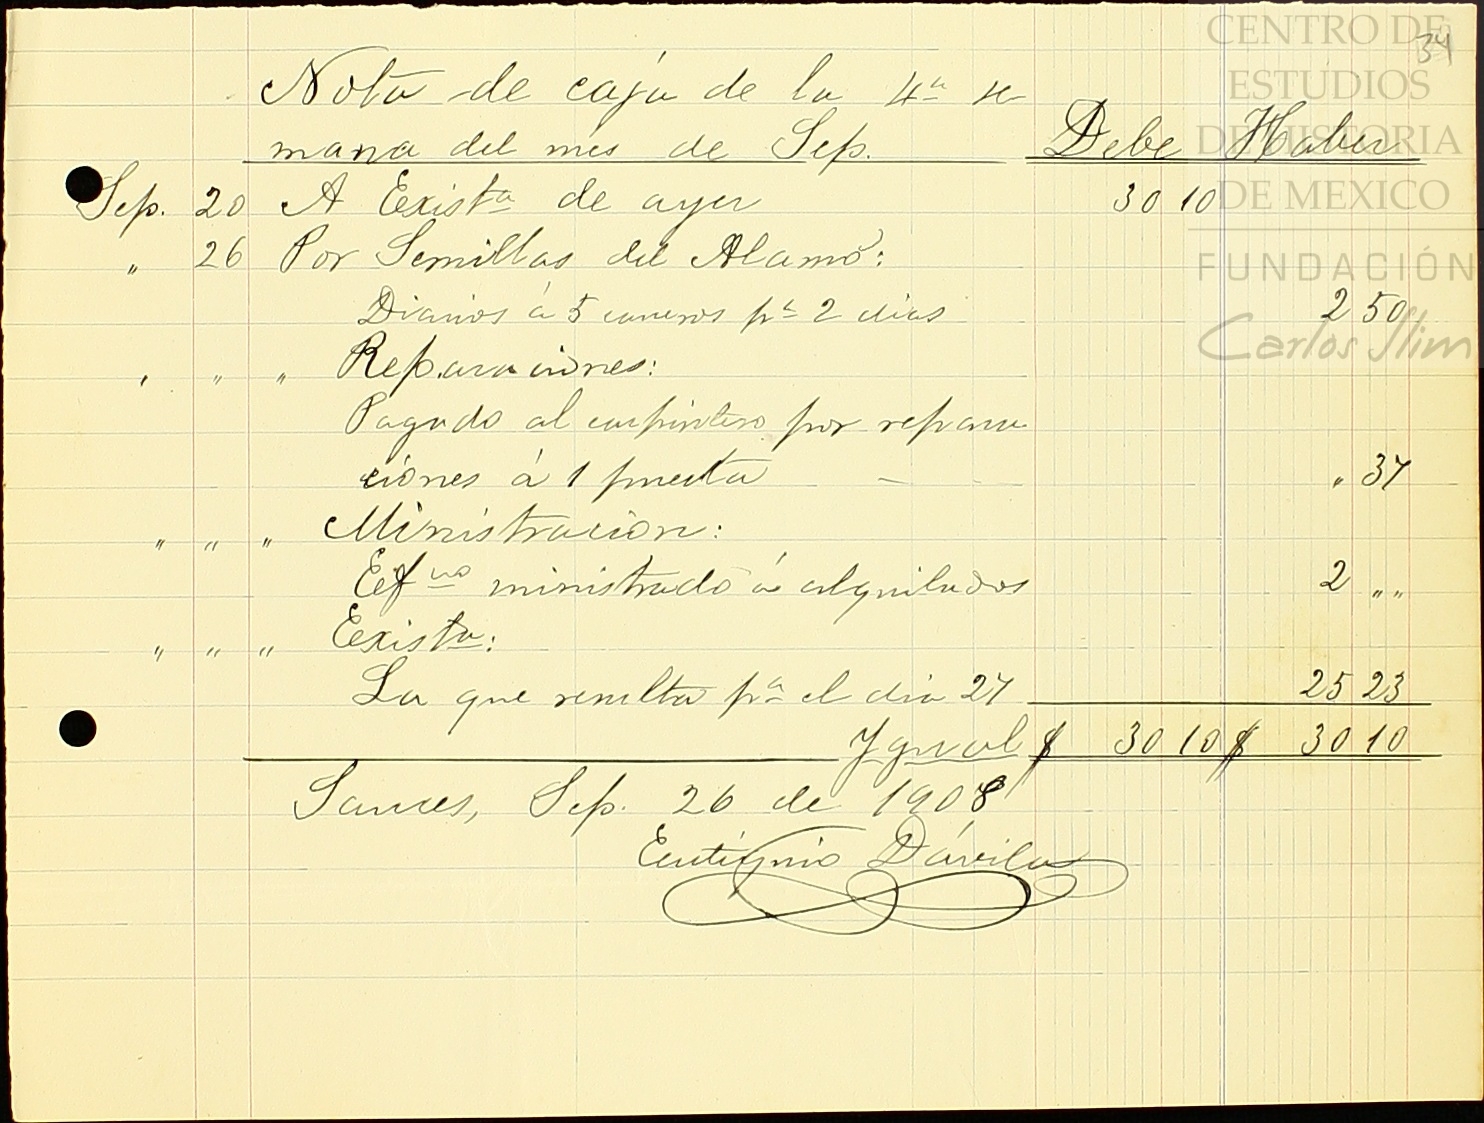 CENTRO DE
ESTUDIOS
DE HISTORIA
DE MEXICO
FUNDACIÓN
Carlos Slim
34
Nota de caja de la 4ª se
mana del mes de Sep. Debe Haber
Sep. 20 A Existª de ayer 30 10
" 26 Por Semillas del Alamo:
Diarios á 5 carreros pª 2 dias 2 50
" " " Reparaciones:
Pagado al carpintero por repara
ciones á 1 puerta " 37
" " " Ministracion:
Eefvo ministrado á alquilados 2 " "
" " " Existª:
La que resulta pª el dia 27 25 23
Ygual $ 30 10 $ 30 10
Sauces, Sep. 26 de 1908
Eutignio Dávila